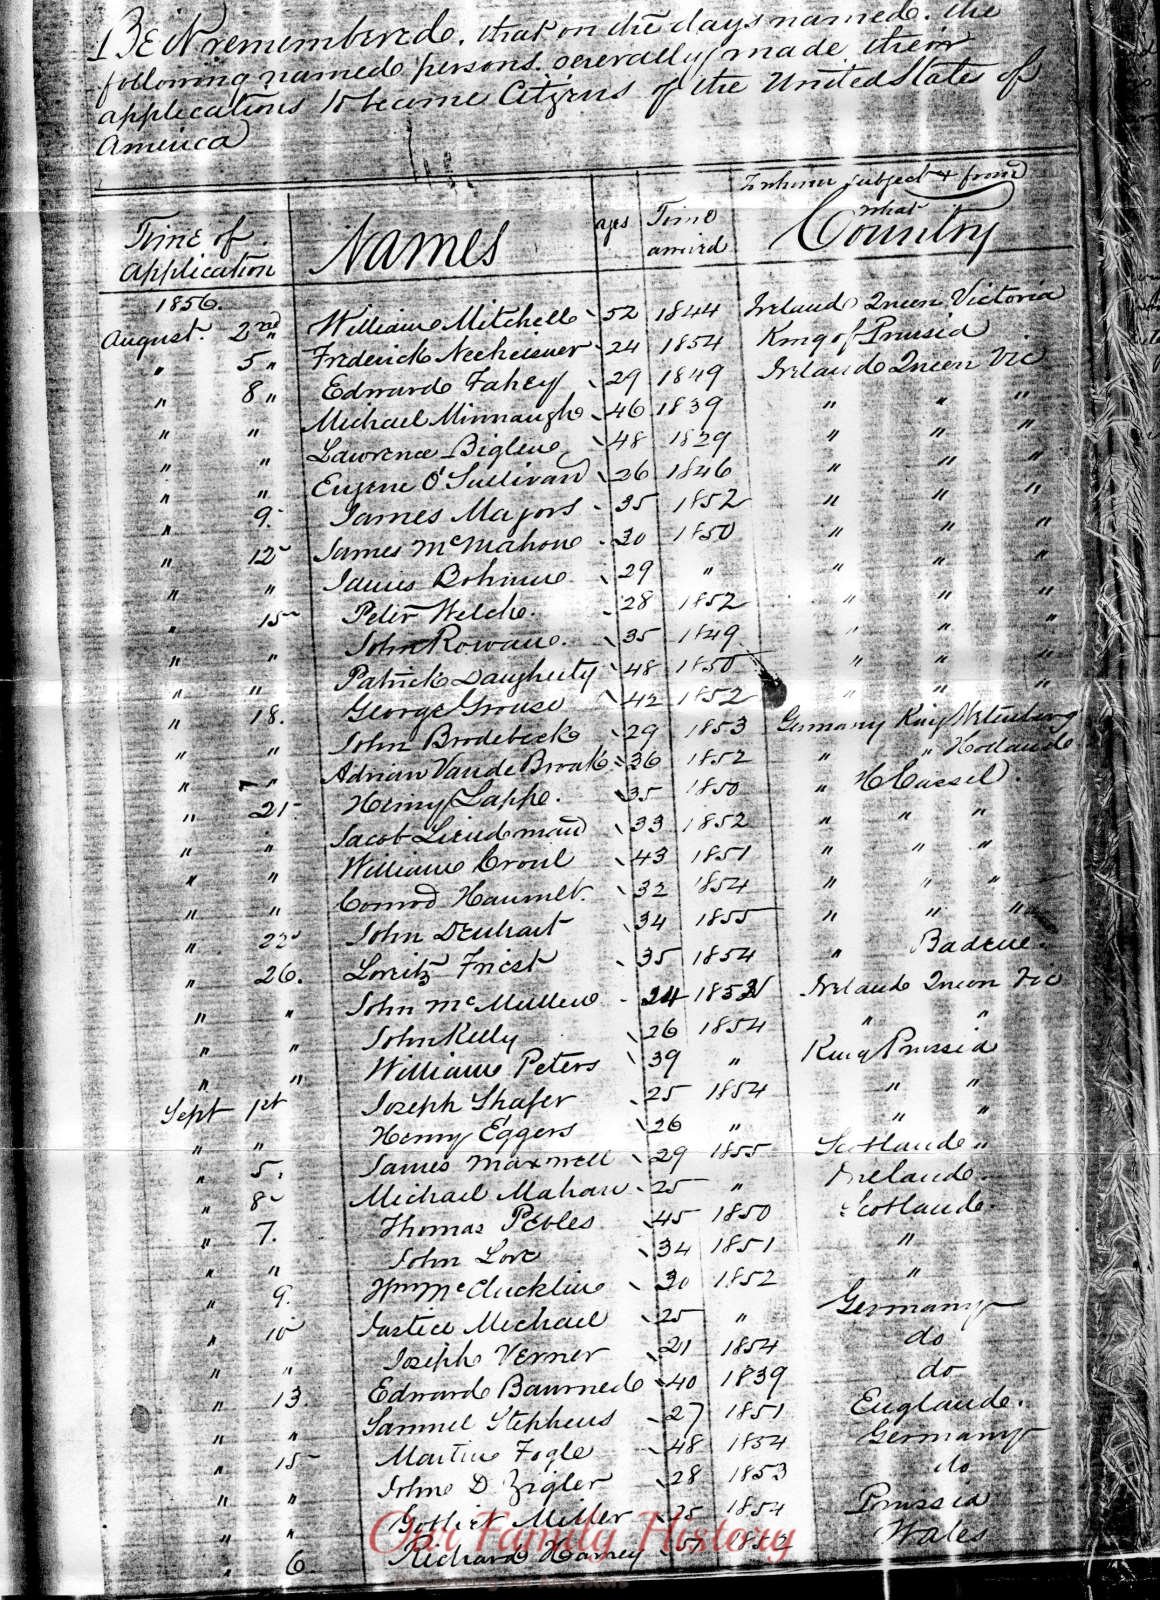 Be it remembered, that on the days named, the
following named persons severally made their
applications to become Citizens of the United States of
America
Time of Application Names ages Time arrivd To whom subject & from what Country
1856.
August. 2nd William Mitchell 52 1844 Ireland Queen Victoria
" 5 " Frederick 24 1854 King of Prussia
" 8 " Edward Fahey 29 1849 Ireland Queen Vic
" " Michael Minnaugh 46 1839 " " "
" " Lawrence Biglew 48 1829 " " "
" " Eugene O'Sullivan 26 1846 " " "
" 9. James Majors 35 1852 " " "
" 12 James McMahon 30 1850 " " "
" " James 29 " " " "
" 15 Peter Welch. 28 1852 " " "
" " John Rowan. 35 1849 " " "
" " Patrick Daugherty 48 1850 " " "
" 18. George Grouse 42 1852 " " "
" " John Brodebeck 29 1853 Germany King
" " Adrian Vande Braak 36 1852 " " Holland
" 21 Henry Lappe. 35 1850 " H Cassel.
" " Jacob 33 1852 " " "
" " William Croul 43 1851 " " "
" " Conrod 32 1854 " " "
" 22 John Denhart 34 1855 " " "
" 26. Loretz Friest 35 1854 " Baden.
" " John McMullen 24 Ireland Queen Vic
" " John Kelly 26 1854 " "
" " William Peters 39 " King Prussia
Sept 1st Joseph Shafer 25 1854 " "
" " Henry Eggers 26 " " "
" 5. James Maxwell 29 1855 Scotland "
" 8 Michael Mahan 25 " Ireland.
" 7. Thomas Pebles 45 1850 Scotland.
" " John Love 34 1851 "
" 9. Wm McClucklin 30 1852 "
" 10 Justice Michael 25 " Germany
" " Joseph Verner 21 1854 do
" 13. Edward 40 1839 do
" " Samuel Stephens 27 1851 England.
" 15 Martin Fogle 48 1854 Germany
" " John D Zigler 28 1853 do
" " Gotlieb Miller 25 1854 Prussia
" 6. Richard Harney Wales
Our Family History
Ancestors